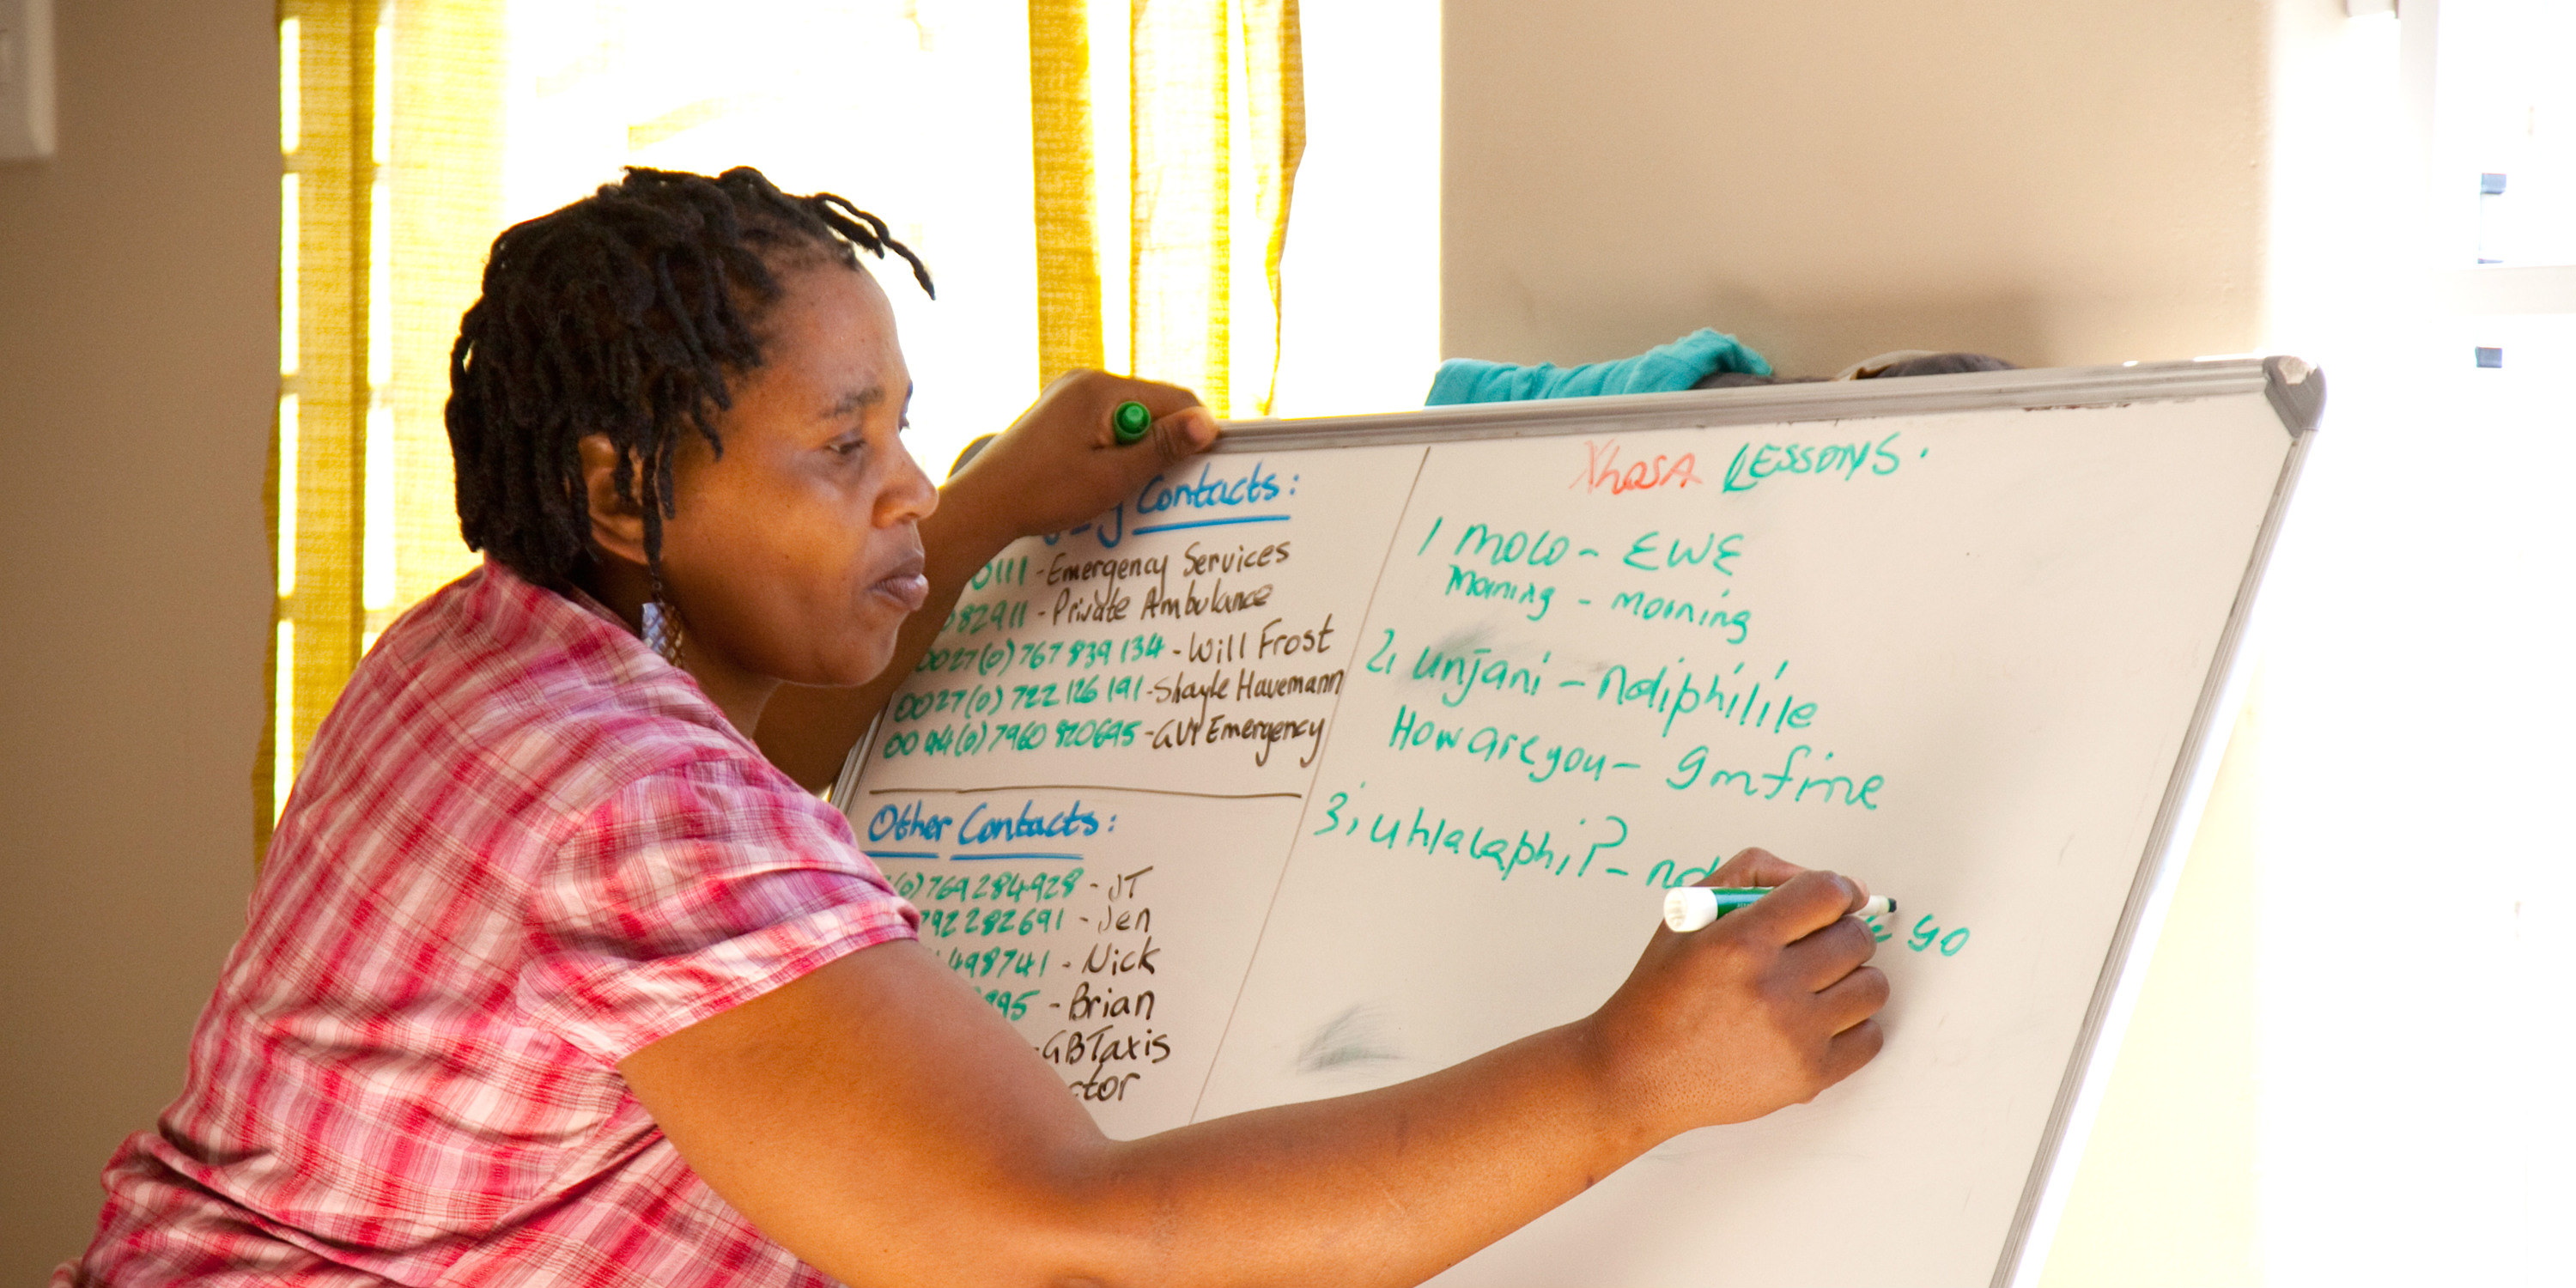 Contacts:
0111 - Emergency Services
082911 - Private Ambulance
0027(0) 767 839 134 - Will Frost
0027(0) 722 126 191 - Shayle Havemann
00 44(0) 7960 820695 - GVI Emergency
Other Contacts:
(0) 769 284928 - JT
792 282691 - Jen
498741 - Nick
995 - Brian
- GBTaxis
Xhosa LESSONS.
1 molo - EWE
Morning - morning
2, unjani - ndiphilile
How are you - 9m fine
3, uhlalaphi? -
go